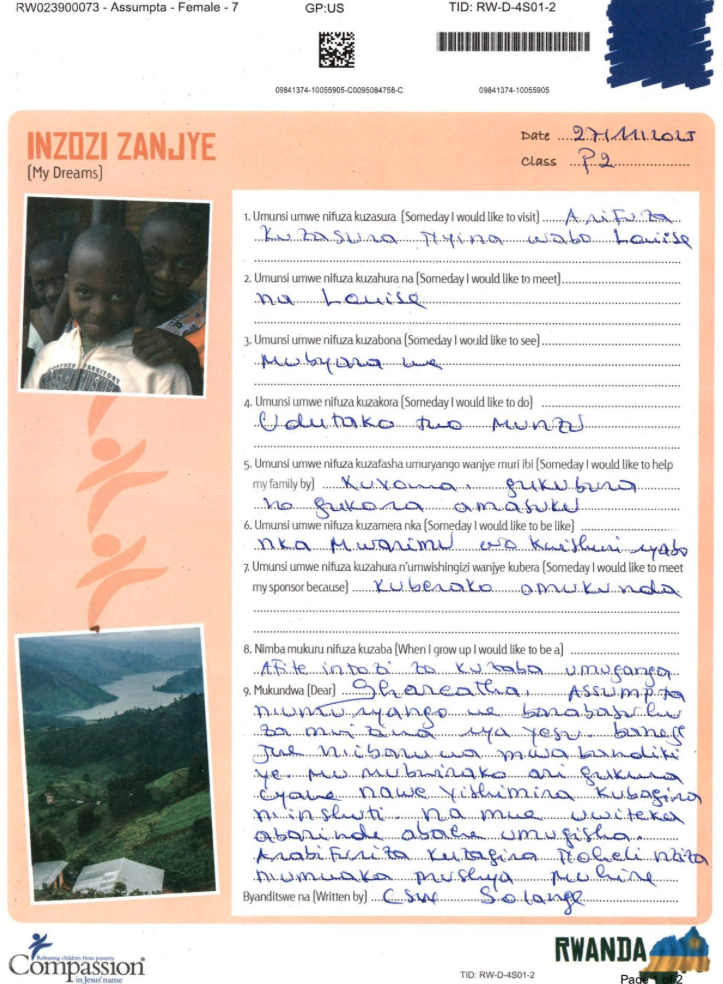 RW023900073 - Assumpta - Female - 7
GP:US
TID: RW-D-4S01-2
09841374-10055905-C0095084758-C
09841374-10055905
INZOZI ZANJYE
(My Dreams)
Date ...27/11/2025
Class ...P2
1. Umunsi umwe nifuza kuzasura (Someday I would like to visit) Arifuza
kuzasura Nyina wabo Louise
2. Umunsi umwe nifuza kuzahura na (Someday I would like to meet)
na Louise
3. Umunsi umwe nifuza kuzabona (Someday I would like to see)
Mubyara we
4. Umunsi umwe nifuza kuzakora (Someday I would like to do)
Udutako two munzu
5. Umunsi umwe nifuza kuzafasha umuryango wanjye muri ibi (Someday I would like to help
my family by) kuvoma, gukubura
no gukora amasuku
6. Umunsi umwe nifuza kuzamera nka (Someday I would like to be like)
nka Mwarimu wo kwishuri ryabo
7. Umunsi umwe nifuza kuzahura n'umwishingizi wanjye kubera (Someday I would like to meet
my sponsor because) kuberako amukunda
8. Nimba mukuru nifuza kuzaba (When I grow up I would like to be a)
Afite inzozi zo kuzaba umuganga
9. Mukundwa (Dear) Assumpta
n'umuryango we barabasuhu
za mwizina rya yesu.
mwabandiki
ye. Mu mubwirako ari gukura
cyane nawe yishimira kubagira
n'inshuti. na mue uwiteka
abarinde abahe umugisha.
Arabifuriza kuzagira Noheli nziza
n'umwaka mushya muhire
Byanditswe na (Written by) CSW Solange
Releasing children from poverty
Compassion
in Jesus' name
TID: RW-D-4S01-2
RWANDA
Page 1 of 2